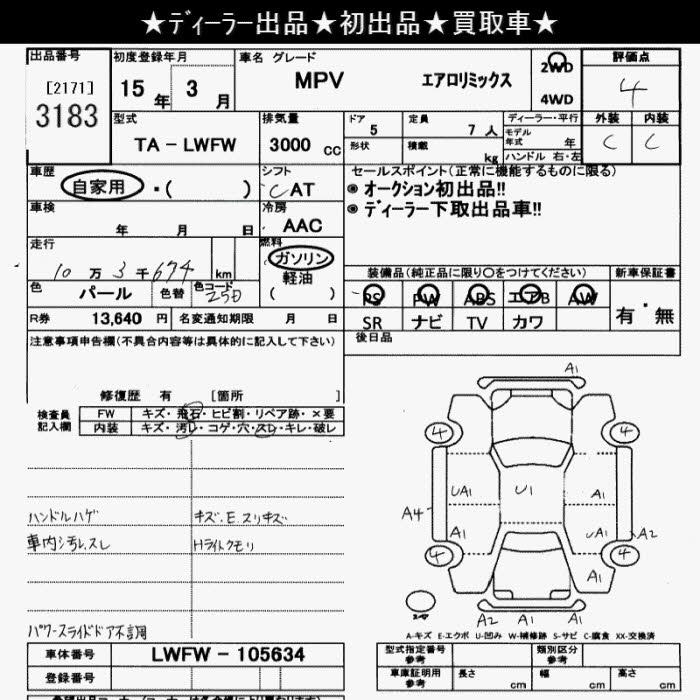 ★ディーラー出品★初出品★買取車★
出品番号 初度登録年月 車名 グレード 評価点
[2171] 15年 3月 MPV エアロリミックス 2WD 4
3183 4WD
型式 排気量 ドア 定員 ディーラー・平行 外装 内装
TA - LWFW 3000 cc 5 7 人 モデル年式 年 C C
形状 積載 kg ハンドル 右・左
車歴 シフト セールスポイント(正常に機能するものに限る)
自家用 ・( ) C AT ◉ オークション初出品!!
車検 冷房 ◉ ディーラー下取出品車!!
年 月 日 AAC
走行 燃料
10万3千674 km ガソリン
軽油
( )
装備品(純正品に限り○をつけてください) 新車保証書
色 パール 色替 色コード 25D PS PW ABS エアB AW 有・無
R券 13,640 円 名変通知期限 月 日 SR ナビ TV カワ
注意事項申告欄(不具合内容等は具体的に記入して下さい) 後日品
修復歴 有 [箇所 ]
検査員記入欄 FW キズ・飛石・ヒビ割・リペア跡・×要
内装 キズ・汚レ・コゲ・穴・スレ・キレ・破レ
A1
4 4
UA1 U1 A1
A4 A1 UA1 A2
4 4
A1
スペア A2 A1 A1
ハンドルハゲ キズ.E.スリキズ
車内シ汚レ.スレ Hライトクモリ
パワースライドドア不調
A-キズ E-エクボ U-凹み W-補修跡 S-サビ C-腐食 XX-交換済
車体番号 LWFW - 105634 型式指定番号 参考 類別区分 参考
登録番号 車庫証明用 参考 長さ cm 幅 cm 高さ cm